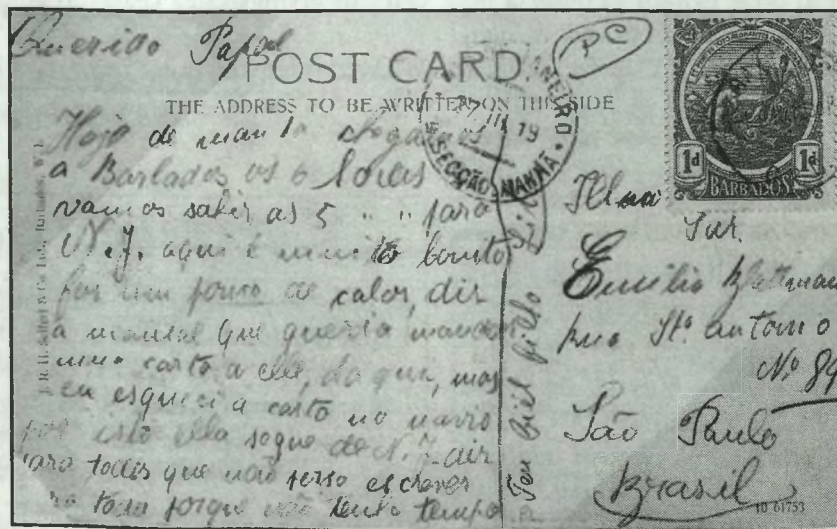 Querido Papai
POST CARD
THE ADDRESS TO BE WRITTEN ON THIS SIDE
Hoje de manhã chegamos
a Barbados as 6 horas
vamos sahir as 5 " " para
N.J. aqui é muito bonito
faz um pouco de calor, diz
a manuel que queria mandar
uma carta a elle, da qui, mas
eu esqueci a carta no navio
por isto ella segue de N.J. diz
para todos que não posso escrever
para todo porque não tenho tempo
Teu fiel filho
PC
SECÇÃO MANHÃ
19
1d
BARBADOS
1d
Illmo
Snr.
Emilio
Rua Sto. antonio
No 89
São Paulo
Brasil
10 61753